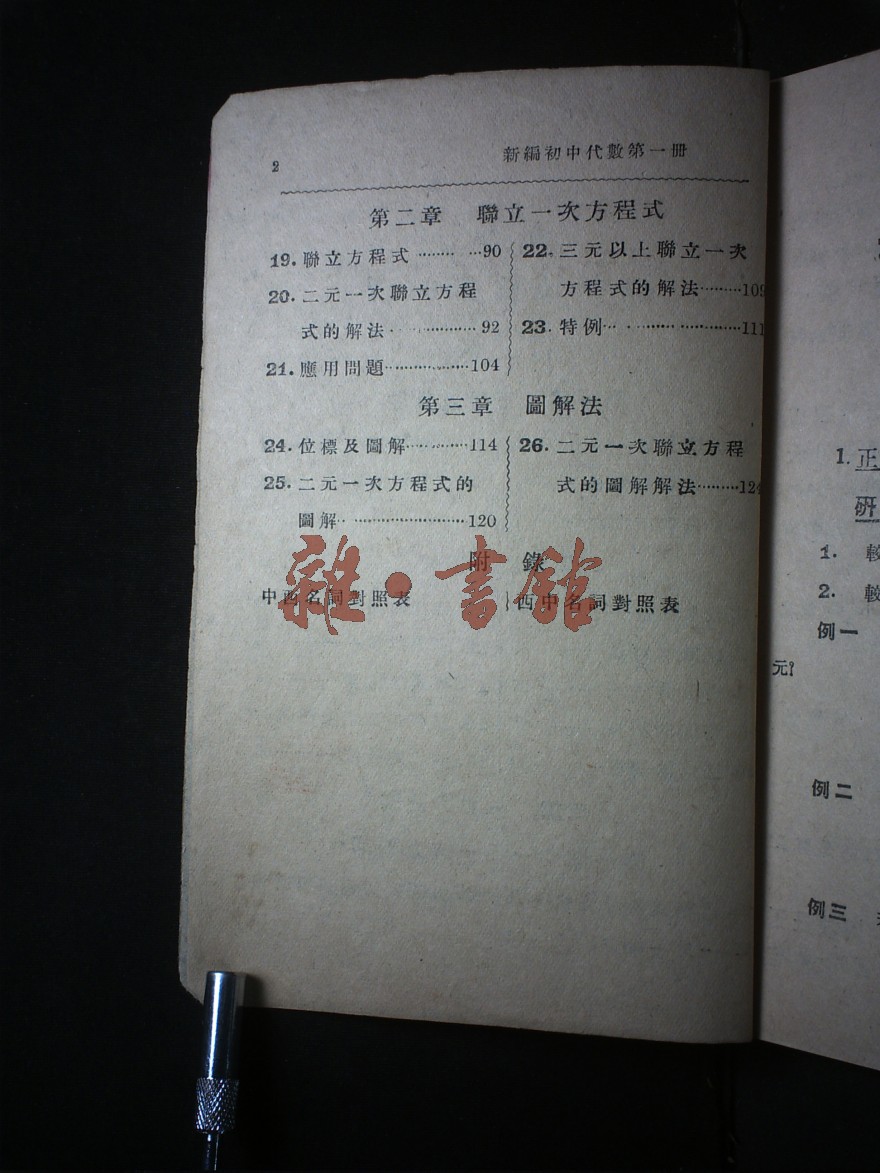 2
新編初中代數第一册
第二章 聯立一次方程式
19. 聯立方程式………90
20. 二元一次聯立方程
式的解法…………92
21. 應用問題…………104
22. 三元以上聯立一次
方程式的解法………109
23. 特例…………………111
第三章 圖解法
24. 位標及圖解…………114
25. 二元一次方程式的
圖解…………………120
26. 二元一次聯立方程
式的圖解解法………124
附 錄
中西名詞對照表
西中名詞對照表
雜·書館
1. 正
研
1. 較
2. 較
例一
元?
例二
例三